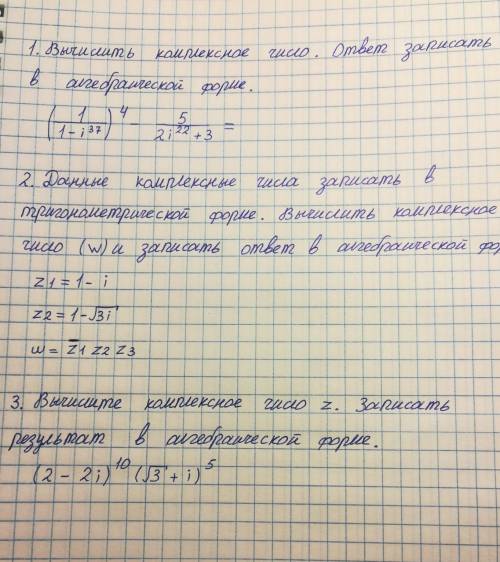 1. Вычислить комплексное число. Ответ записать
в алгебраической форме.
(1/(1-i^37))^4 - 5/(2i^22+3) =
2. Данные комплексные числа записать в
тригонометрической форме. Вычислить комплексное
число (w) и записать ответ в алгебраической фор
z1 = 1 - i
z2 = 1 - √3i
w = z̄1 z2 z3
3. Вычислите комплексное число z. Записать
результат в алгебраической форме.
(2 - 2i)^10 (√3 + i)^5